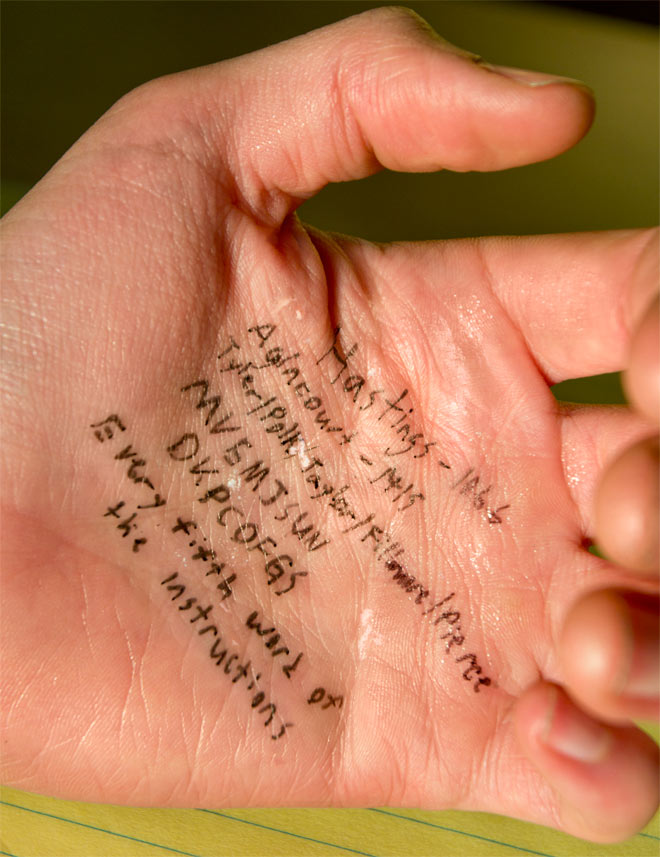 Hastings - 1066
Agincourt - 1415
Tyler/Polk/Taylor/Fillmore/Pierce
MVEMJSUN
DKPCOFGS
Every fifth word of
the instructions